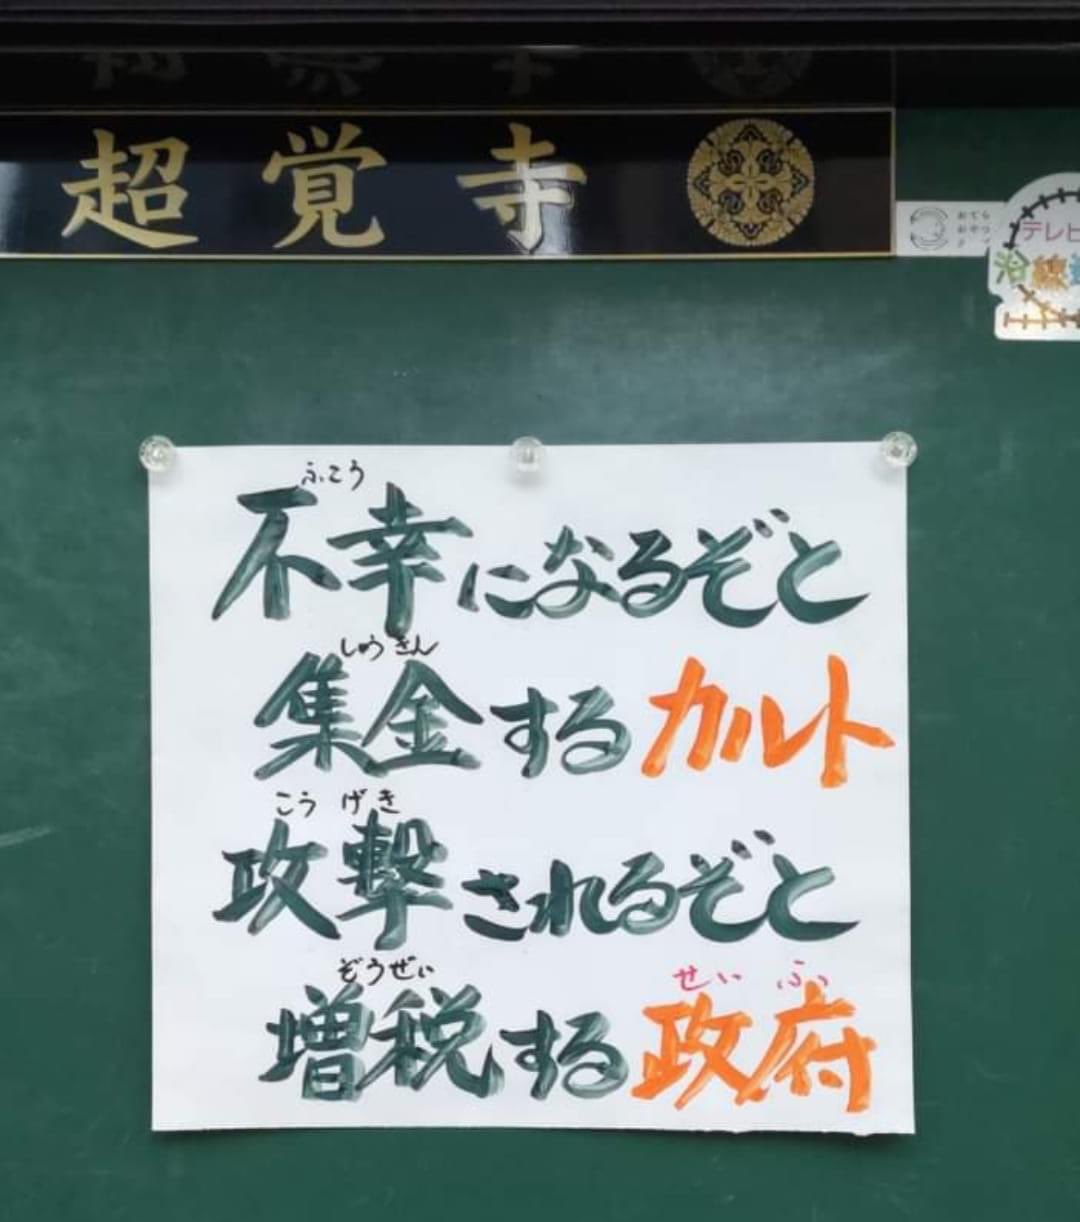 超覚寺
おてら
おやつ
テレビ
ふこう
不幸になるぞと
しゅうきん
集金するカルト
こうげき
攻撃されるぞと
ぞうぜい せいふ
増税する政府